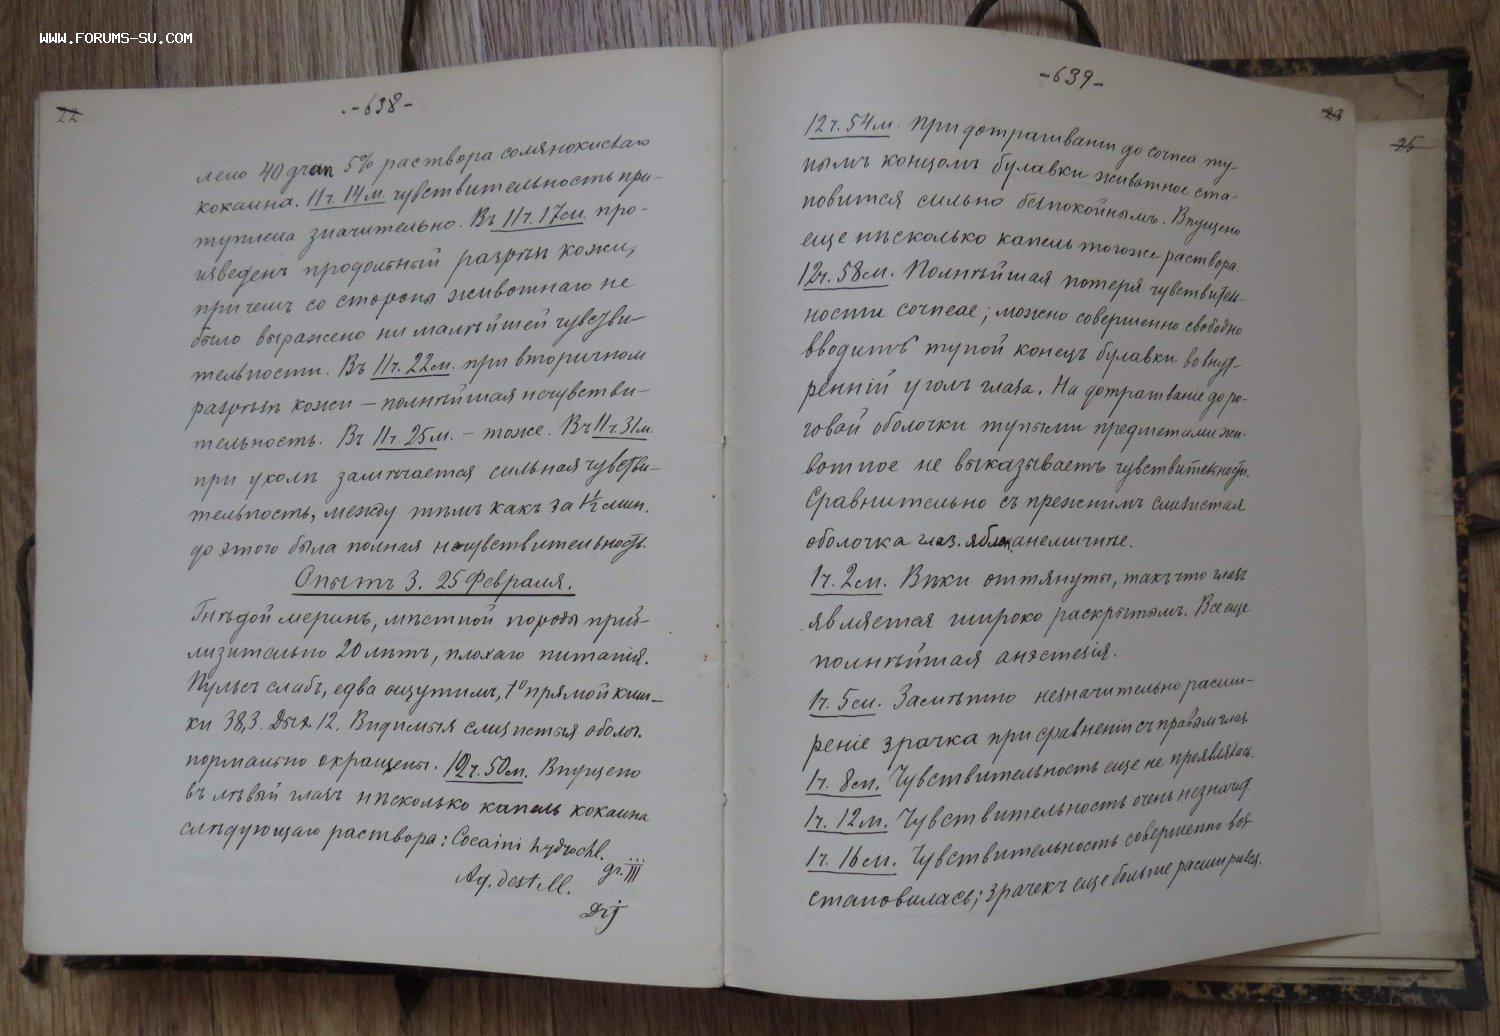 WWW.FORUMS-SU.COM
22
-638-
лено 40 gran 5% раствора солянокислаго
кокаина. 11ч. 14м. чувствительность при-
туплена значительно. Въ 11ч. 17м. про-
изведенъ продольный разрѣзъ кожи,
причемъ со стороны животнаго не
было выражено ни малѣйшей чувстви-
тельности. Въ 11ч. 22м. при вторичномъ
разрѣзѣ кожи – полнѣйшая нечувстви-
тельность. Въ 11ч. 25м. – тоже. Въ 11ч. 31м.
при уколѣ замѣчается сильная чувстви-
тельность, между тѣмъ какъ за 1½ мин.
до этого была полная нечувствительность.
Опытъ 3. 25 Февраля.
Гнѣдой меринъ, мѣстной породы приб-
лизительно 20 лѣтъ, плохаго питанія.
Пульсъ слабъ, едва ощутимъ, t° прямой киш-
ки 38,3. Дых. 12. Видимыя слизистыя оболоч.
нормально окрашены. 12ч. 50м. Впущено
въ лѣвый глазъ нѣсколько капель кокаина
слѣдующаго раствора: Cocaini hydrochl.
gr. III
Aq. destill.
Ʒij
-639-
23
25
12ч. 54м. При дотрагиваніи до сочнеа ту-
пымъ концомъ булавки животное ста-
новится сильно безпокойнымъ. Впущено
еще нѣсколько капель тогоже раствора.
12ч. 58м. Полнѣйшая потеря чувствитель-
ности сочнеае; можно совершенно свободно
вводить тупой конецъ булавки во внут-
ренній уголъ глаза. На дотрагиваніе до ро-
говой оболочки тупыми предметами жи-
вотное не выказываетъ чувствительности.
Сравнительно съ прежнимъ слизистая
оболочка глаз. яблок. анемичнѣе.
1ч. 2м. Вѣки оттянуты, такъ что глазъ
является широко раскрытымъ. Все еще
полнѣйшая анэстезія.
1ч. 5м. Замѣтно незначительно расши-
реніе зрачка при сравненіи съ правымъ глаз.
1ч. 8м. Чувствительность еще не проявилась.
1ч. 12м. Чувствительность очень незначит.
1ч. 16м. Чувствительность совершенно воз-
становилась; зрачекъ еще больше расширился.